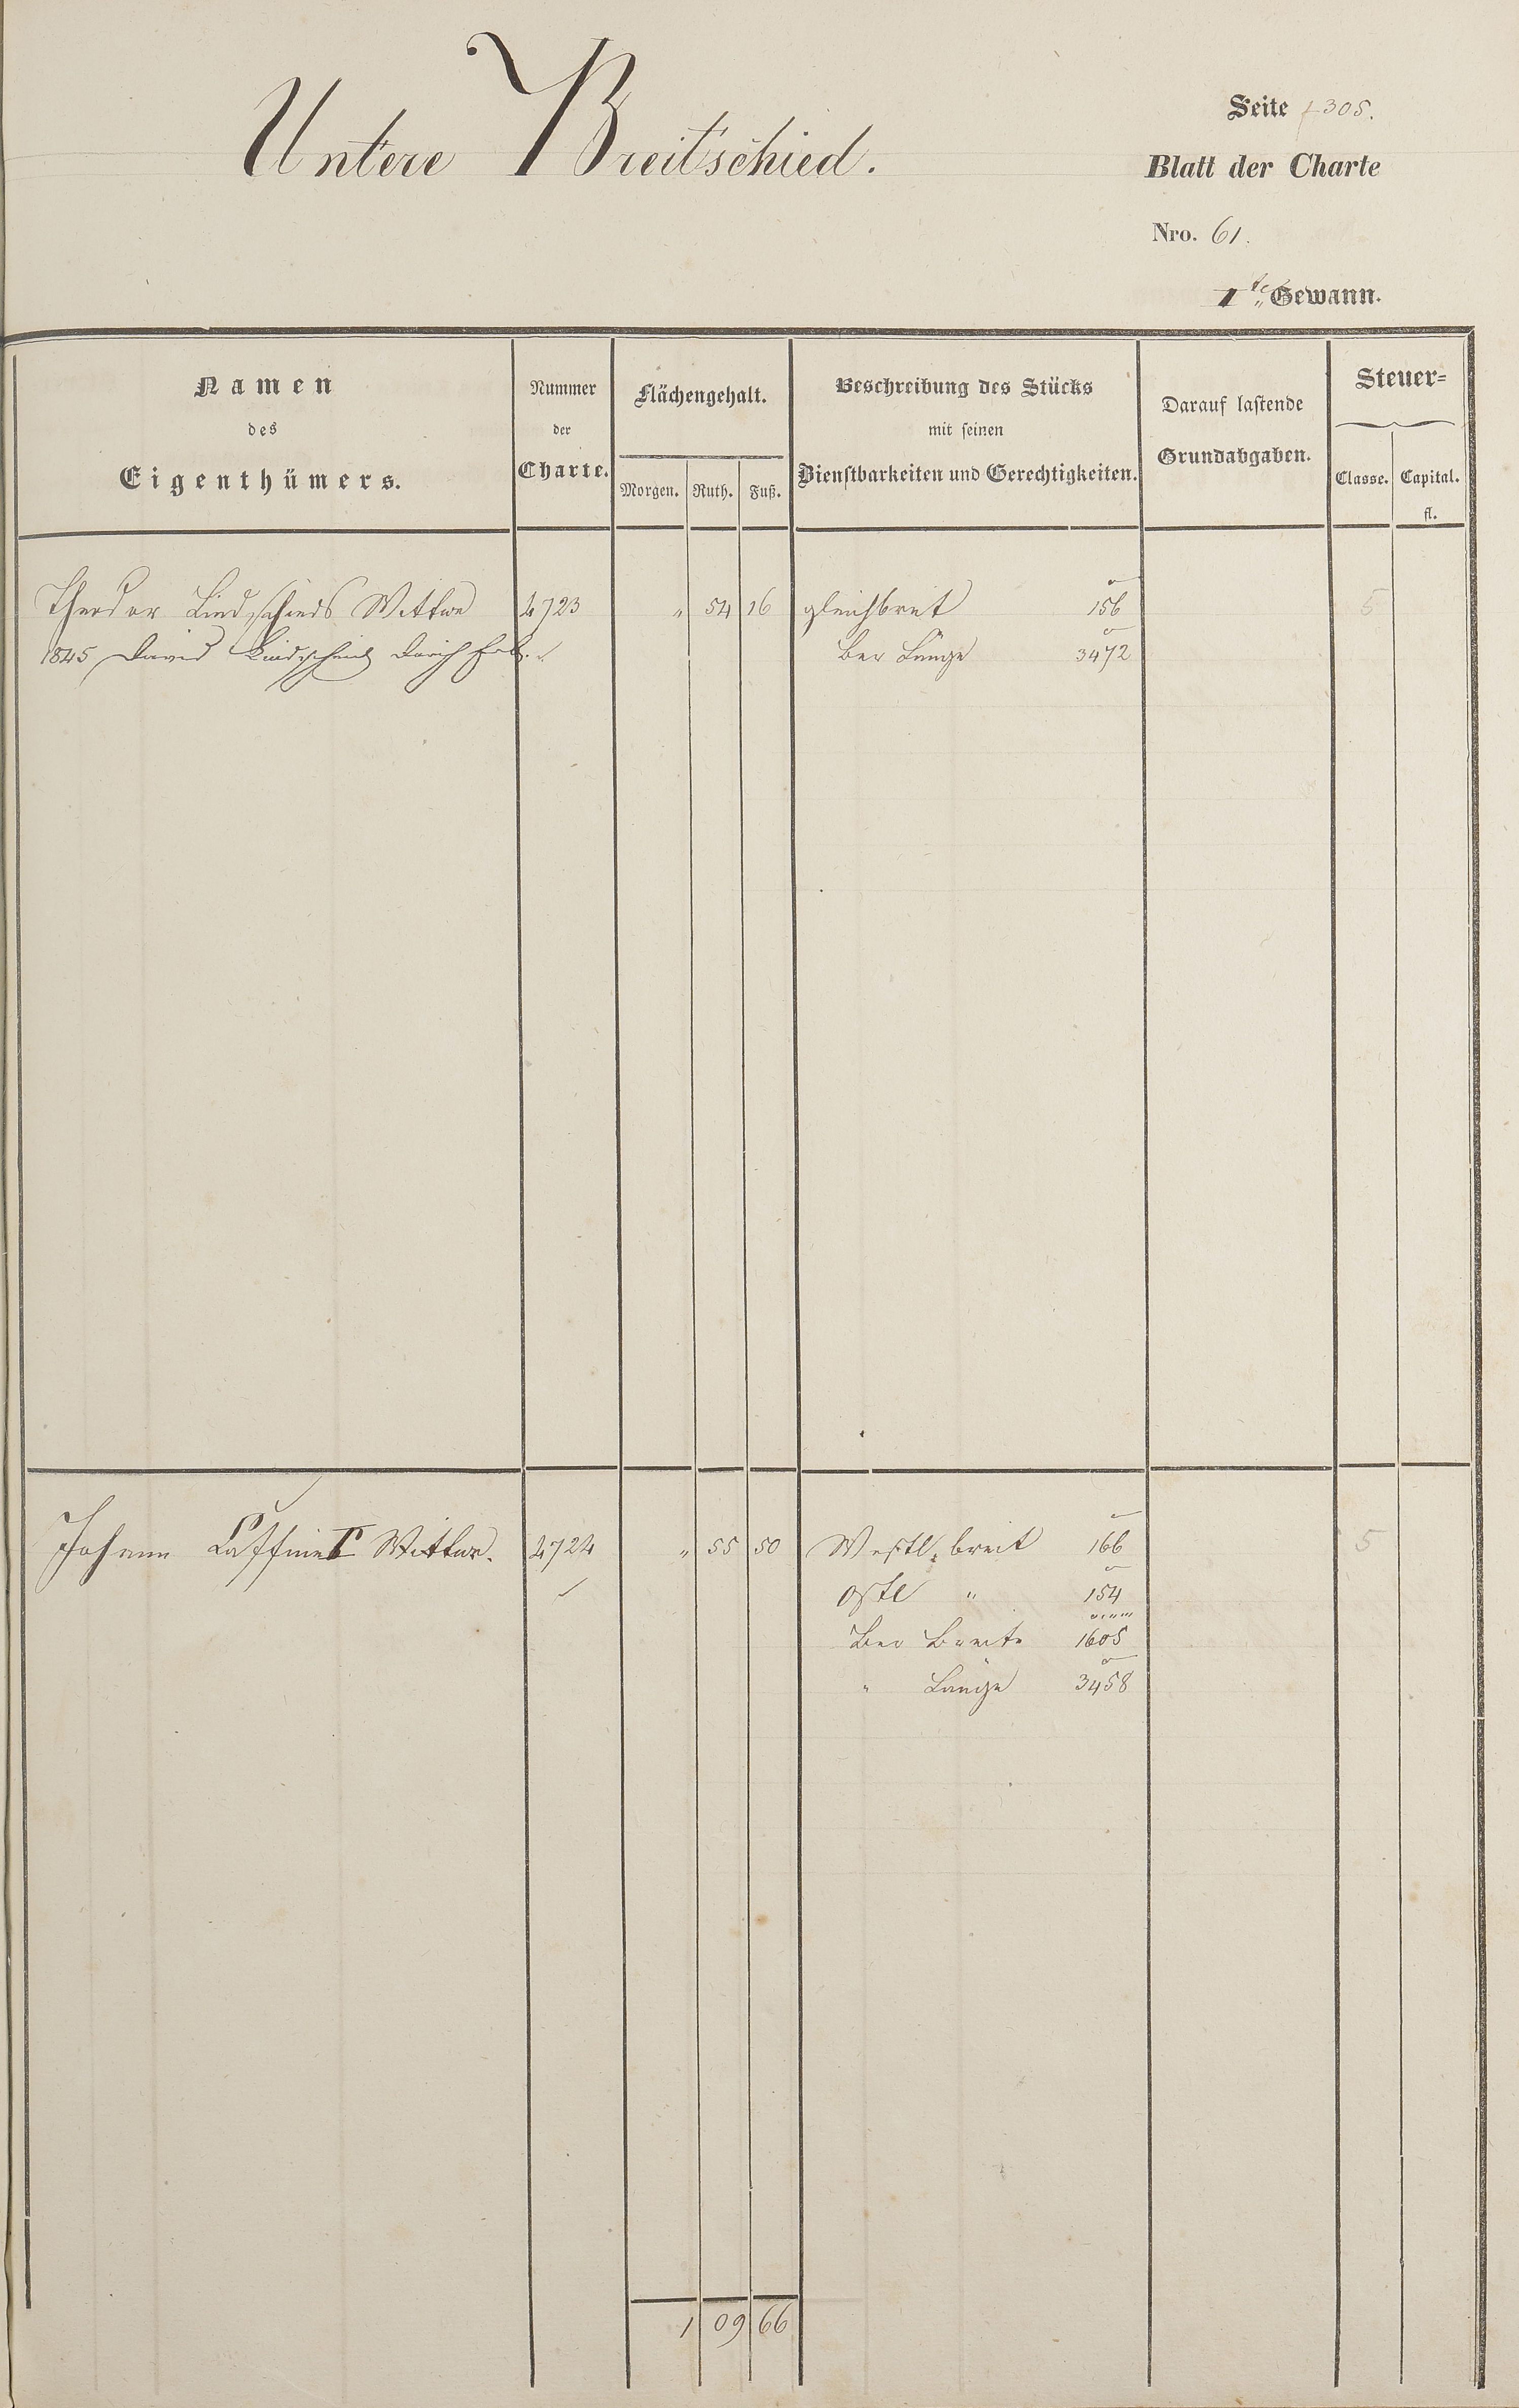 Untere Breitschied.
Seite 1305.
Blatt der Charte
Nro. 61.
1te Gewann.
Namen
des
Eigenthümers.
Nummer
der
Charte.
Flächengehalt.
Morgen. Ruth. Fuß.
Beschreibung des Stücks
mit seinen
Dienstbarkeiten und Gerechtigkeiten.
Darauf lastende
Grundabgaben.
Steuer-
Classe. Capital.
fl.
Theodor Lindscheids Wittwe 4723 " 54 16 gleichbreit 156 5
1845 David Lindscheid durch Erb. Ber Länge 3472
Johann Wittwe. 4724 " 55 50 Westl. breit 166 5
östl " 154
Ber Breite 1605
" Länge 3458
1 09 66